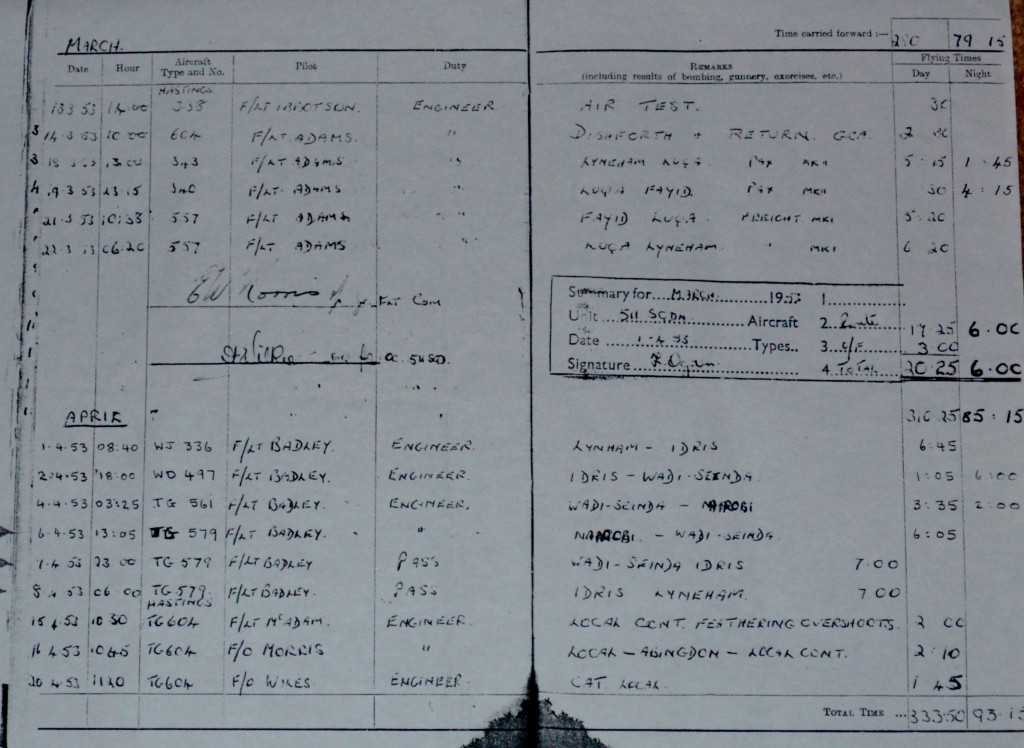 MARCH. Time carried forward :— 290 79 15
Date Hour Aircraft Type and No. Pilot Duty REMARKS (including results of bombing, gunnery, exercises, etc.) Flying Times Day Night
HASTINGS
13 3 53 14.00 F/LT IBERTSON. ENGINEER AIR TEST. 30
14.3.53 10 00 604 F/LT. ADAMS. " DISHFORTH + RETURN. GCA. 2 30
343 F/LT ADAMS " LYNEHAM LUQA. PAX MKII 5 15 1 45
19.3 53 23.15 340 F/LT ADAMS " LUQA FAYID PAX MKII 30 4 : 15
21.3.53 10:33 557 F/LT ADAMS " FAYID LUQA. FREIGHT MKI 5. 20
06.20 557 F/LT ADAMS " LUQA LYNEHAM. " MKI 6 20
Summary for MARCH 1953 1
Unit 511 SQDN Aircraft 2 Route 17 25 6.00
Date Types.. 3 3 00
Signature 4 TOTAL 20 25 6.00
O.C. 511 SQD.
APRIL 310 25 85 : 15
1.4.53 08:40 WJ 336 F/LT BADLEY. ENGINEER. LYNHAM - IDRIS 6:45
2.4.53 18:00 WD 497 F/LT BADLEY. ENGINEER. IDRIS - WADI-SEINDA. 1:05 6:00
4.4.53 03:25 TG 561 F/LT BADLEY. ENGINEER. WADI-SEINDA - NAIROBI 3:35 2:00
6.4.53 13:05 TG 579 F/LT BADLEY. " NAIROBI. - WADI-SEINDA. 6:05
23.00 TG 579 F/LT BADLEY PASS WADI-SEINDA IDRIS 7.00
8 4 53 06 00 TG 579. F/LT BADLEY. PASS IDRIS LYNEHAM. 7 00
HASTINGS
15 4.53 10 30 TG604 F/LT McADAM. ENGINEER. LOCAL CONT. FEATHERING OVERSHOOTS. 2 00
16 4.53 1045 TG604 F/O MORRIS " LOCAL - ABINGDON - LOCAL CONT. 2:10
20 4.53 1120 TG604 F/O WILES. ENGINEER. CAT LOCAL. 1 45
TOTAL TIME ... 333.50 93.15